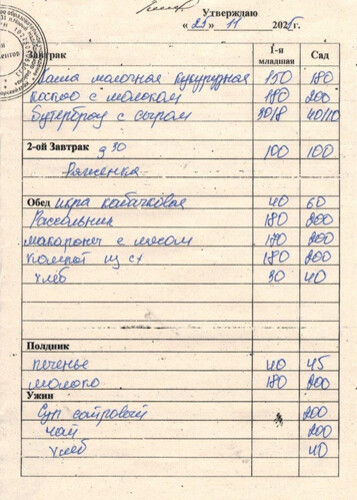 Утверждаю
« 25 » 11 2025г.
Завтрак 1-я младшая Сад
Каша молочная кукурудная 150 180
какао с молоком 180 200
Бутерброд с сыром 30/8 40/10
2-ой Завтрак 9 30 100 100
Ряженка
Обед икра кабачковая 40 60
Рассольник 180 200
макароны с мясом 200
компот из сх 180 200
хлеб 30 40
Полдник
печенье 40 45
молоко 180 200
Ужин
Суп сайровый 200
чай 200
хлеб 40